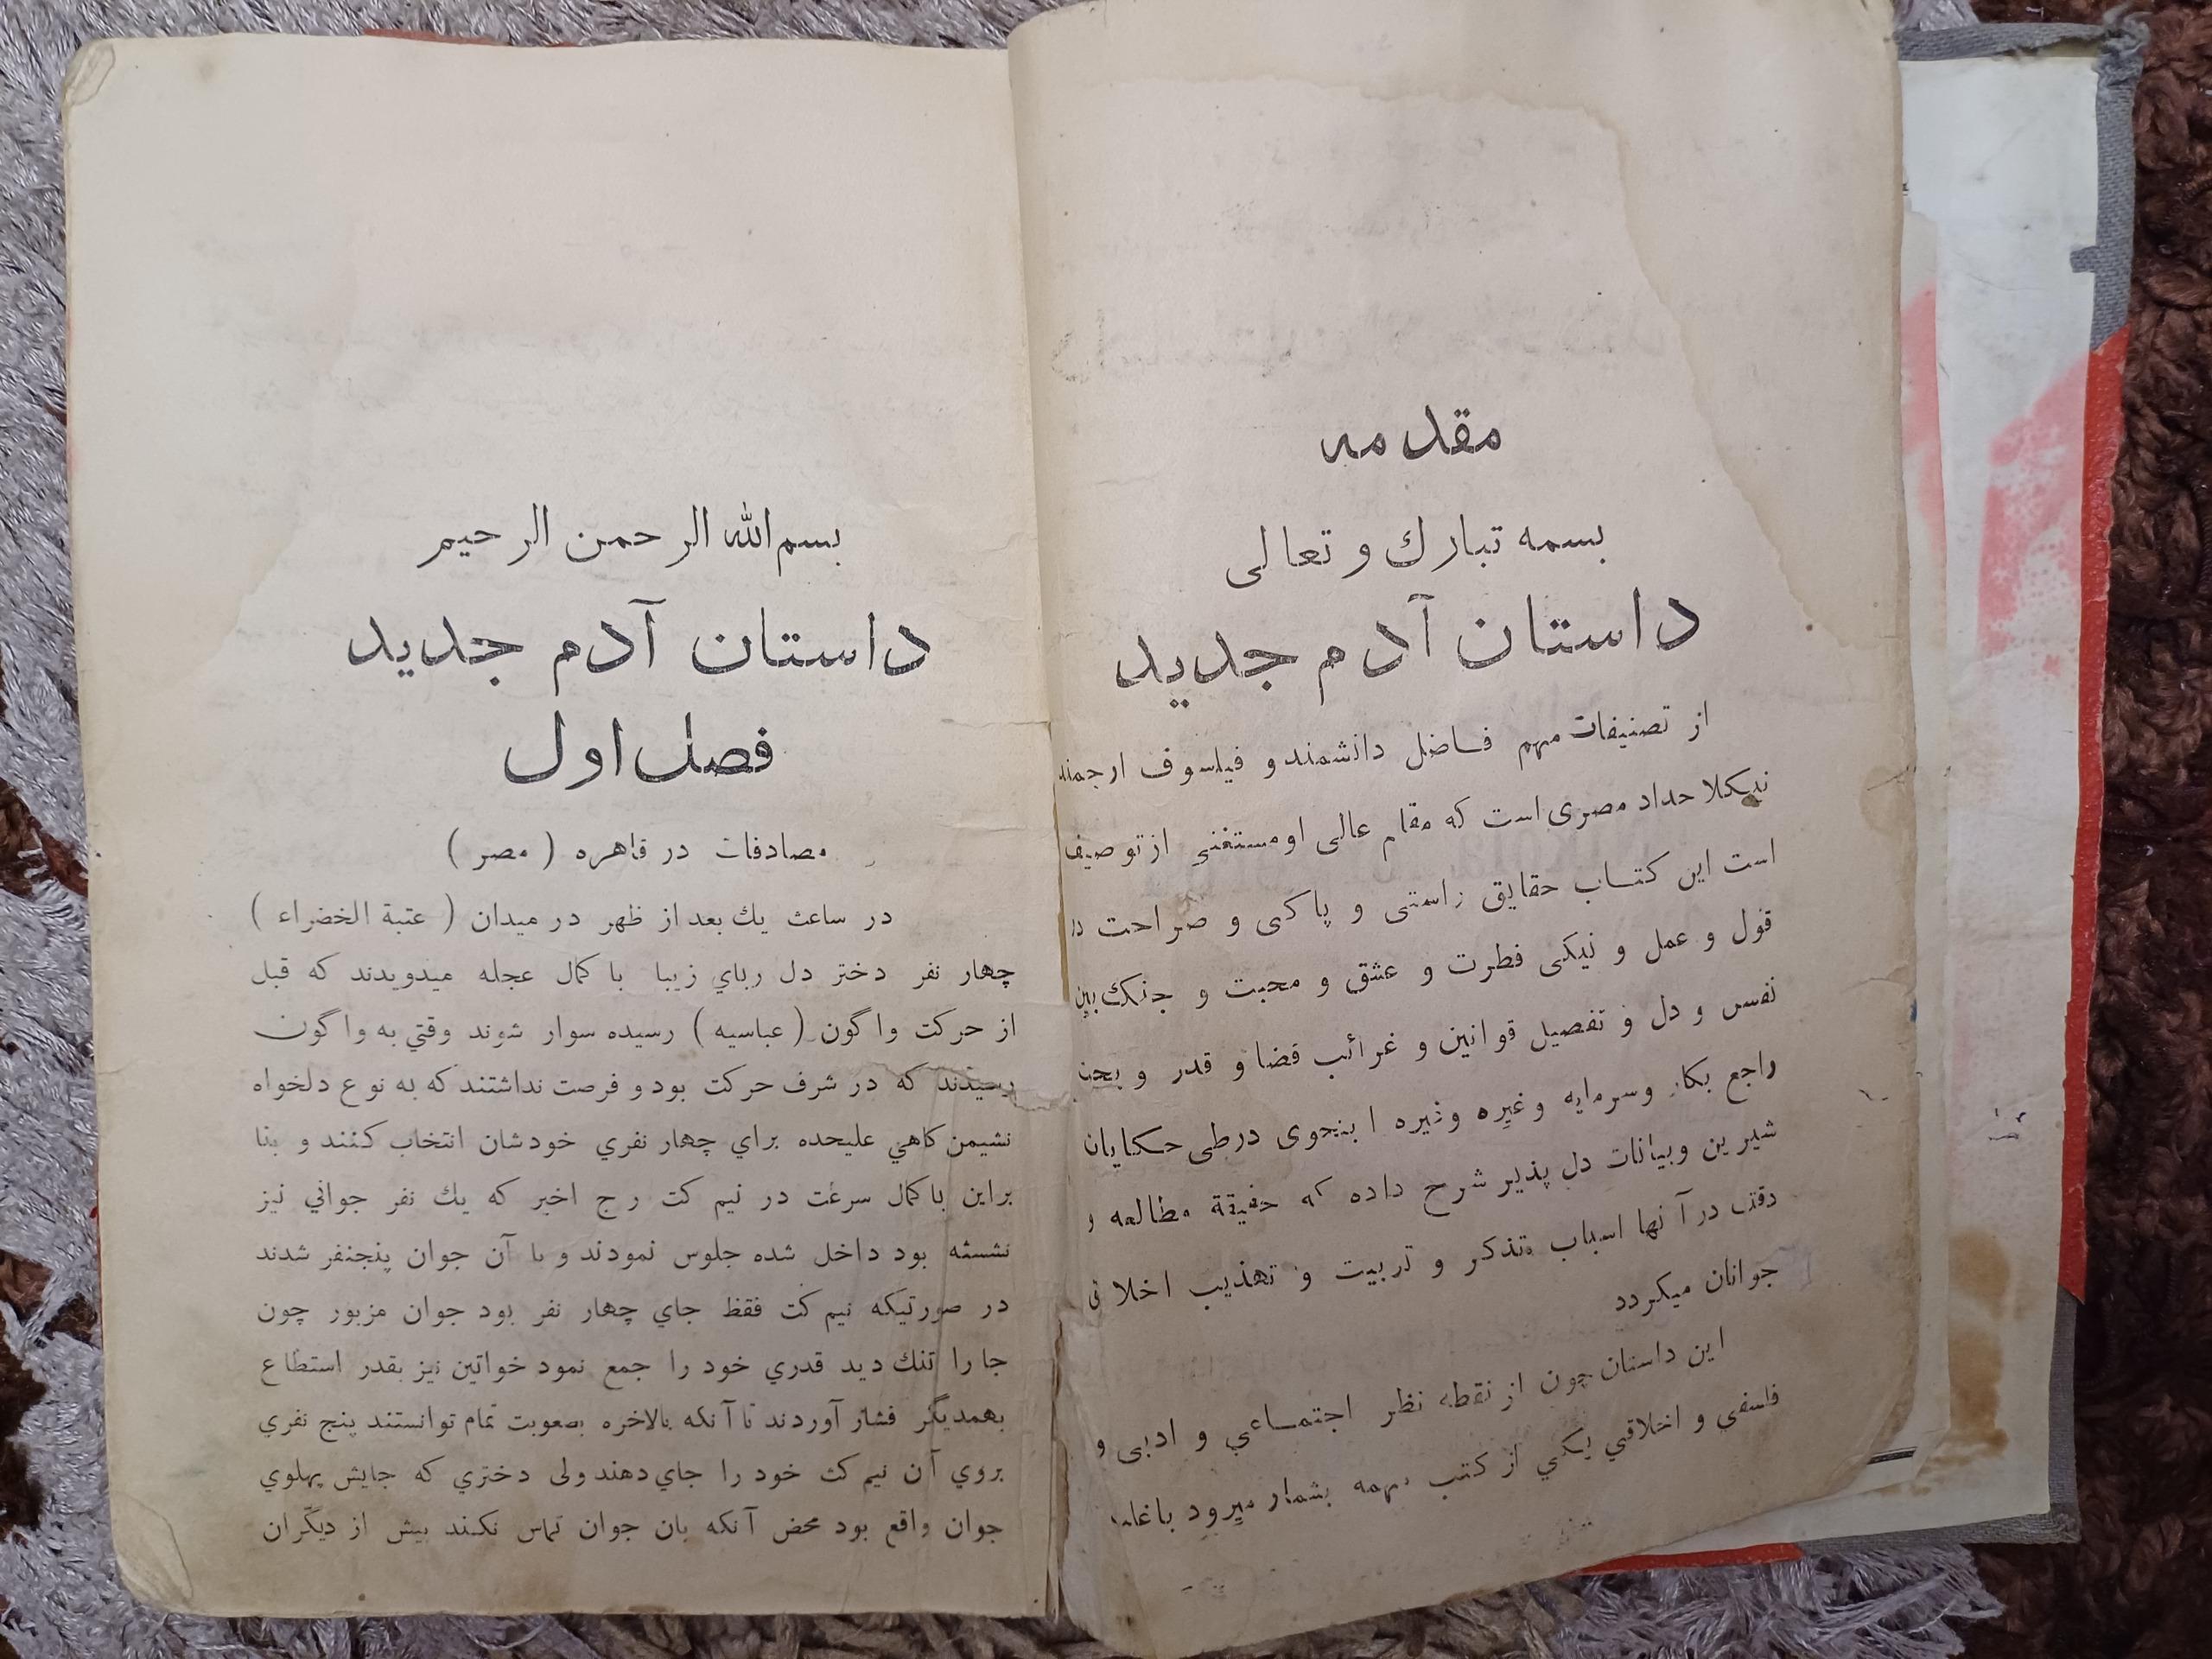 مقدمه
بسمه تبارك و تعالی
داستان آدم جدید
از تصنیفات مهم فاضل دانشمند و فیلسوف ارجمند
نیکلا حداد مصری است که مقام عالی او مستغنی از توصیف
است این کتاب حقایق راستی و پاکی و صراحت در
قول و عمل و نیکی فطرت و عشق و محبت و جنك بین
نفس و دل و تفصیل قوانین و غرائب قضا و قدر و بحث
راجع بکار وسرمایه وغیره وغیره ا بنحوی درطی حکایان
شیرین وبیانات دل پذیر شرح داده که حقیقة مطالعه و
دقت در آنها اسباب تذکر و تربیت و تهذیب اخلاق
جوانان میکردد
این داستان چون از نقطه نظر اجتماعي و ادبی و
فلسفی و اخلاقي یکي از کتب مهمه بشمار میرود
بسم الله الرحمن الرحیم
داستان آدم جدید
فصل اول
مصادفات در قاهره ( مصر )
در ساعت یك بعد از ظهر در میدان ( عتبة الخضراء )
چهار نفر دختر دل رباي زیبا با کمال عجله میدویدند که قبل
از حرکت واگون ( عباسیه ) رسیده سوار شوند وقتي به واگون
رسیدند که در شرف حرکت بود و فرصت نداشتند که به نوع دلخواه
نشیمن کاهي علیحده براي چهار نفري خودشان انتخاب کنند و بنا
براین با کمال سرعت در نیم کت رج اخیر که یك نفر جواني نیز
نشسته بود داخل شده جلوس نمودند و با آن جوان پنجنفر شدند
در صورتیکه نیم کت فقط جاي چهار نفر بود جوان مزبور چون
جا را تنك دید قدري خود را جمع نمود خواتین نیز بقدر استطاع
بهمدیگر فشار آوردند تا آنکه بالاخره بصعوبت تمام توانستند پنج نفري
بروي آن نیم کت خود را جاي دهند ولی دختري که جایش پهلوي
جوان واقع بود محض آنکه بان جوان تماس نکند بیش از دیگران